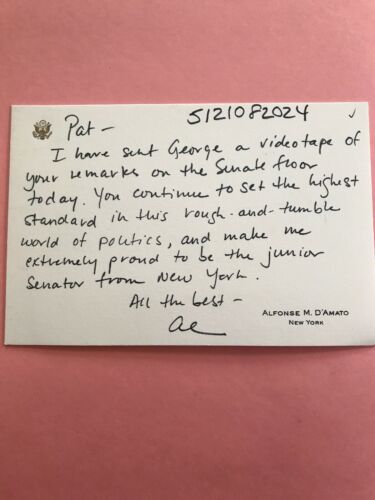 5121082024
Pat -
I have sent George a videotape of
your remarks on the Senate floor
today. You continue to set the highest
standard in this rough-and-tumble
world of politics, and make me
extremely proud to be the junior
Senator from New York.
All the best -
Al
ALFONSE M. D'AMATO
NEW YORK